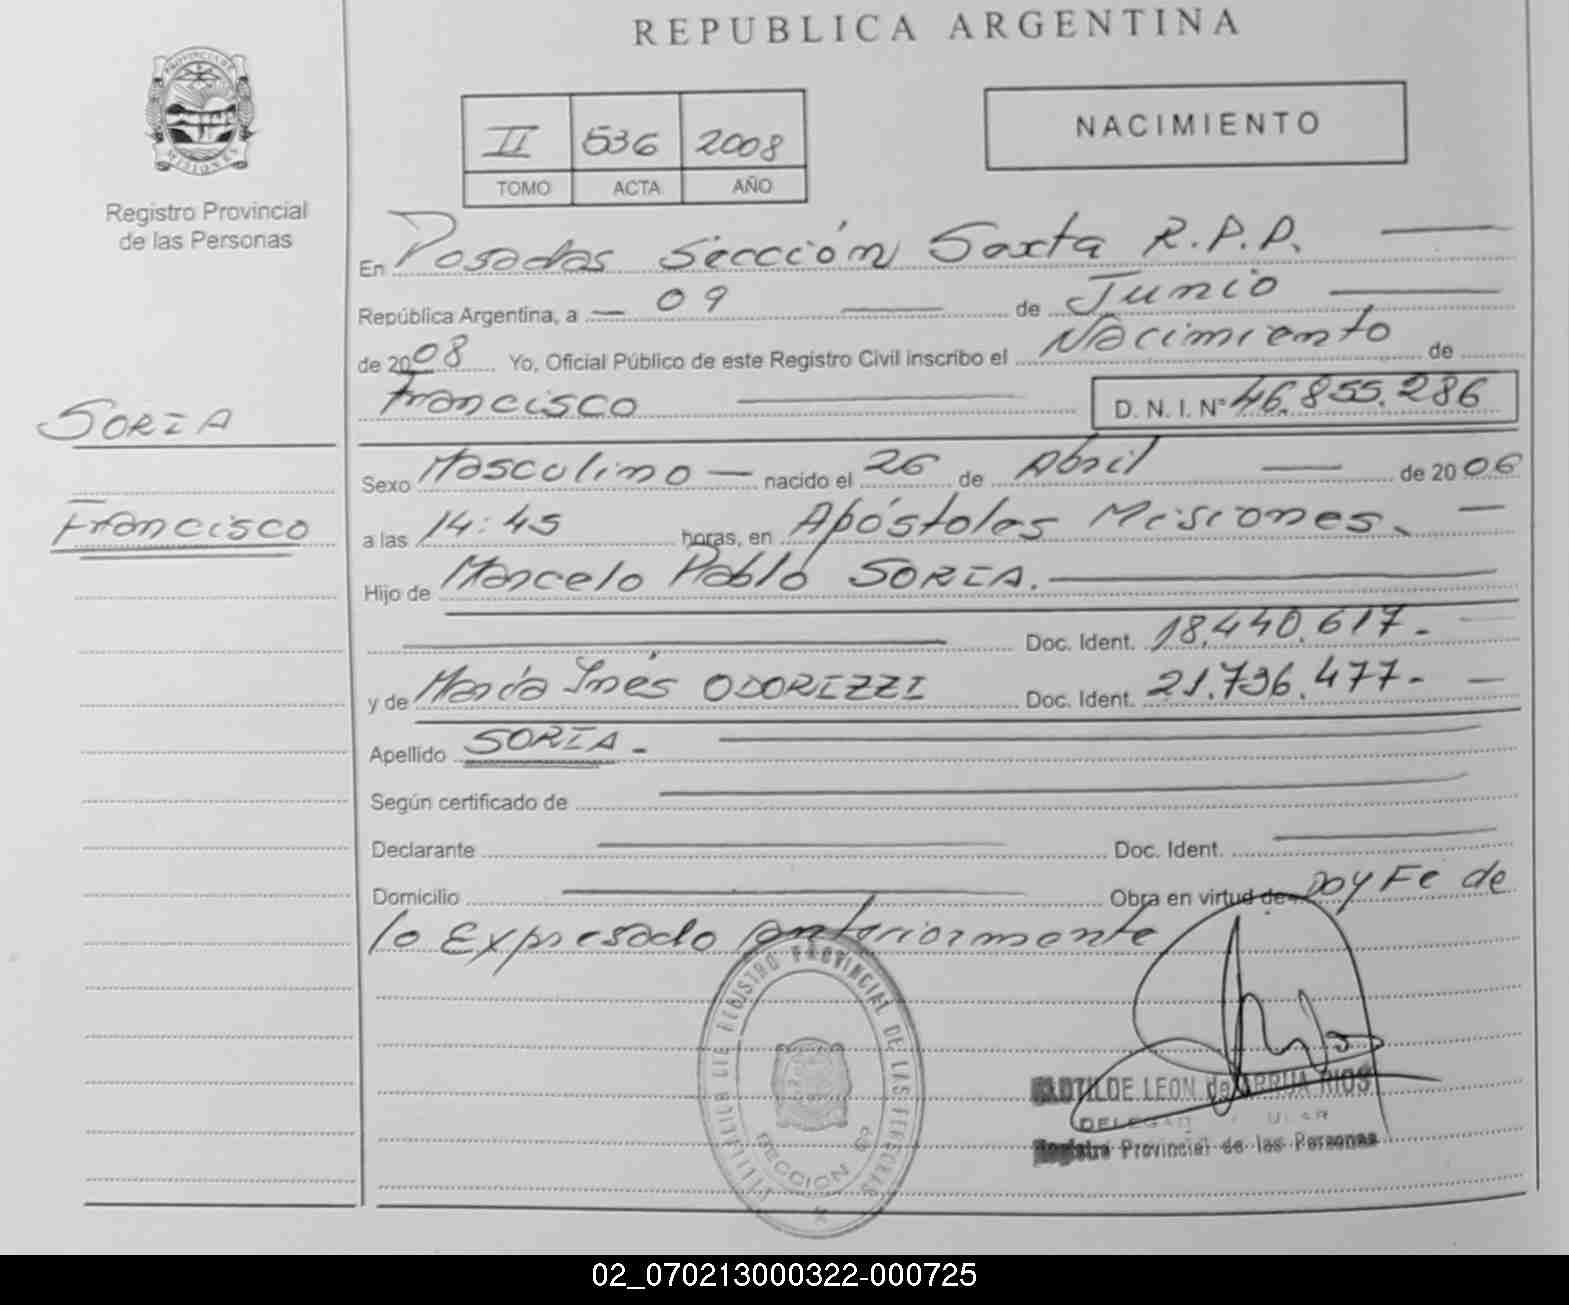 REPUBLICA ARGENTINA
PROVINCIA DE
MISIONES
Registro Provincial
de las Personas
II 536 2008
TOMO ACTA AÑO
NACIMIENTO
En Posadas Sección Sexta R.P.P.
República Argentina, a 09 de Junio
de 2008 Yo, Oficial Público de este Registro Civil inscribo el Nacimiento de
Francisco D. N. I. Nº 46.855.286
SORIA
Francisco
Sexo Masculino nacido el 26 de Abril de 2006
a las 14:45 horas, en Apóstoles Misiones.
Hijo de Marcelo Pablo SORIA.
Doc. Ident. 18.440.617.-
y de María Inés ODORIZZI Doc. Ident. 21.736.477.-
Apellido SORIA.-
Según certificado de
Declarante Doc. Ident.
Domicilio Obra en virtud de Doy Fe de
lo Expresado anteriormente
REGISTRO PROVINCIAL DE LAS PERSONAS
SECCION 6ª
CLOTILDE LEON de ARRUA RIOS
Registro Provincial de las Personas
02_070213000322-000725